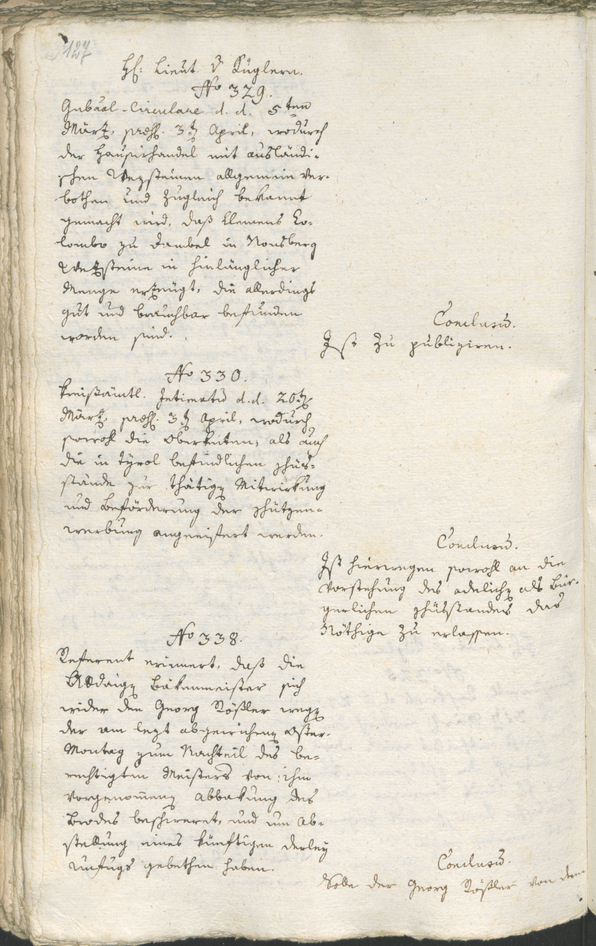 127
H: Lieut. v Kuglern.
No 329.
Gubaal-Circulare d. d. 5ten
März, præs. 3t April, wodurch
der Hausirhandel mit ausländi-
schen Wezsteinen allgemein ver-
bothen und zugleich bekannt
gemacht wird, daß Klemens Co-
lombo zu Dambel in Nonsberg
Wezsteine in hinlänglicher
Menge erzeugt, die allerdings
gut und brauchbar befunden
worden sind.
Conclusu.
Ist zu publiziren.
No 330.
Kreisämtl. Intimatu d. d. 20t
März, præs. 3t April, wodurch
sowohl die Oberkeiten, als auch
die in Tyrol befindlichen
stände zur thätigen Mitwirkung
und Beförderung der Schützen-
werbung angeeifert werden.
Conclusu.
Ist hierwegen sowohl an die
Vorstehung des adelichen als bür-
gerlichen standes das
Nöthige zu erlassen.
No 338.
Referent erinnert, daß die
Bäkenmeister sich
wider den Georg Rößler wegen
der am lezt abgewichenen Oster-
Montag zum Nachteil des be-
rechtigten Meisters von ihm
vorgenommenen Abbakung des
Brodes beschweret, und um Ab-
stellung eines künftigen derley
Unfugs gebethen haben.
Conclusu.
Solle der Georg Rößler von dem